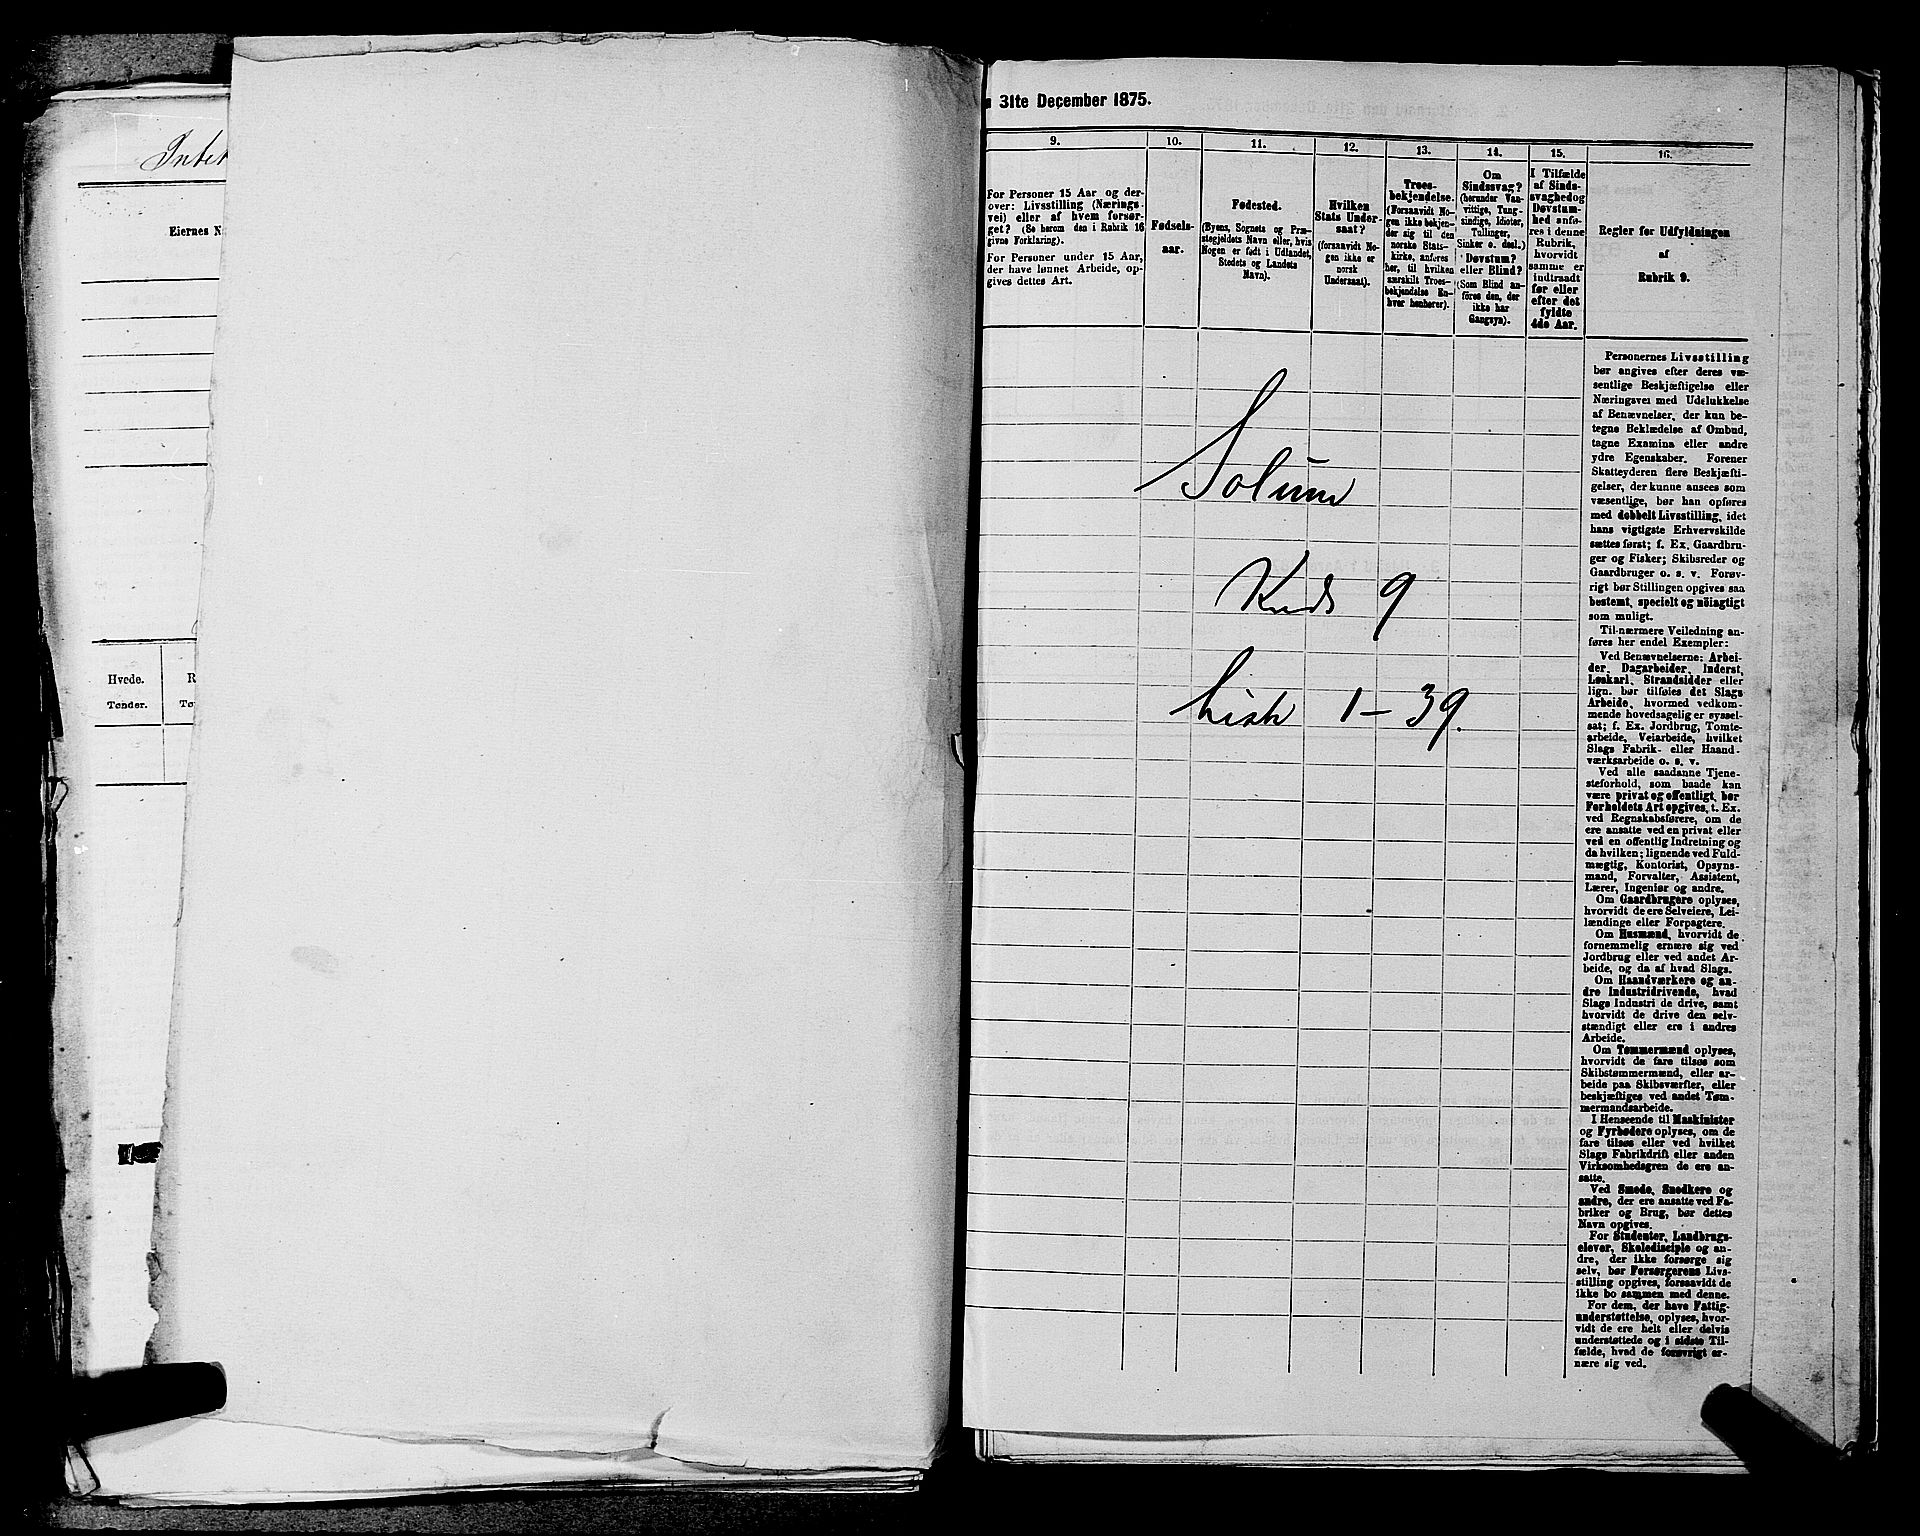 Eiernes N
Hvede.
Tønder.
R
Tø
31te December 1875.
9.
10.
11.
12.
13.
14.
15.
16.
For Personer 15 Aar og der-
over: Livsstilling (Nærings-
vei) eller af hvem forsør-
get? (Se herom den i Rubrik 16
givne Forklaring).
For Personer under 15 Aar,
der have lønnet Arbeide, op-
gives dettes Art.
Fødsels-
aar.
Fødested.
(Byens, Sognets og Præ-
stegjeldets Navn eller, hvis
Nogen er født i Udlandet,
Stedets og Landets
Navn).
Hvilken
Stats Under-
saat?
(forsaavidt No-
gen ikke er
norsk
Undersaat).
Troes-
bekjendelse.
(Forsaavidt No-
gen ikke bekjen-
der sig til den
norske Stats-
kirke, anføres
her, til hvilken
særskilt Troes-
bekjendelse En-
hver henhører).
Om
Sindssvag?
(herunder Van-
vittige, Tung-
sindige, Idioter,
Tullinger,
Sinker o. desl.)
Døvstum?
eller Blind?
(Som Blind an-
føres den, der
ikke har
Gangsyn).
I Tilfælde
af Sinds-
svaghed og
Døvstum-
hed anfø-
res i denne
Rubrik,
hvorvidt
samme er
indtraadt
før eller
efter det
fyldte
4de Aar.
Regler for Udfyldningen
af
Rubrik 9.
Solum
Kreds 9
Liste 1-39.
Personernes Livsstilling
bør angives efter deres væ-
sentlige Beskjæftigelse eller
Næringsvei med Udelukkelse
af Benævnelser, der kun be-
tegne Beklædelse af Ombud,
tagne Examina eller andre
ydre Egenskaber. Forener
Skatteyderen flere Beskjæfti-
gelser, der kunne ansees som
væsentlige, bør han opføres
med dobbelt Livsstilling, idet
hans vigtigste Erhvervskilde
sættes først; f. Ex. Gaardbru-
ger og Fisker; Skibsreder og
Gaardbruger o. s. v. Forøv-
rigt bør Stillingen opgives saa
bestemt, specielt og nöiagtigt
som muligt.
Til nærmere Veiledning an-
føres her endel Exempler:
Ved Benævnelserne: Arbei-
der, Dagarbeider, Inderst,
Løskarl, Strandsidder eller
lign. bør tilføies det Slags
Arbeide, hvormed vedkom-
mende hovedsagelig er syssel-
sat; f. Ex. Jordbrug, Tomte-
arbeide, Veiarbeide, hvilket
Slags Fabrik- eller Haand-
værksarbeide o. s. v.
Ved alle saadanne Tjene-
steforhold, som baade kan
være privat og offentligt, bør
Forholdets Art opgives, t. Ex.
ved Regnskabsførere, om de
ere ansatte ved en privat eller
ved en offentlig Indretning og
da hvilken; lignende ved Fuld-
mægtig, Kontorist, Opsyns-
mand, Forvalter, Assistent,
Lærer, Ingeniør og andre.
Om Gaardbrugere oplyses,
hvorvidt de ere Selveiere, Lei-
lændinge eller Forpagtere.
Om Husmænd, hvorvidt de
fornemmelig ernære sig ved
Jordbrug eller ved andet Ar-
beide, og da af hvad Slags.
Om Haandværkere og an-
dre Industridrivende, hvad
Slags Industri de drive, samt
hvorvidt de drive den selv-
stændigt eller ere i andres
Arbeide.
Om Tømmermænd oplyses,
hvorvidt de fare tilsøs som
Skibstømmermænd, eller ar-
beide paa Skibsværfter, eller
beskjæftiges ved andet Tøm-
mermandsarbeide.
I Henseende til Maskinister
og Fyrbødere oplyses, om de
fare tilsøs eller ved hvilket
Slags Fabrikdrift eller anden
Virksomhedsgren de ere an-
satte.
Ved Smede, Snedkere og
andre, der ere ansatte ved Fa-
briker og Brug, bør dettes
Navn opgives.
For Studenter, Landbrugs-
elever, Skoledisciple og an-
dre, der ikke forsørge sig
selv, bør Forsørgerens Livs-
stilling opgives, forsaavidt de
ikke bo sammen med denne.
For dem, der have Fattig-
understøttelse, oplyses, hvor-
vidt de ere helt eller delvis
understøttede og i sidste Til-
fælde, hvad de forøvrigt er-
nære sig ved.